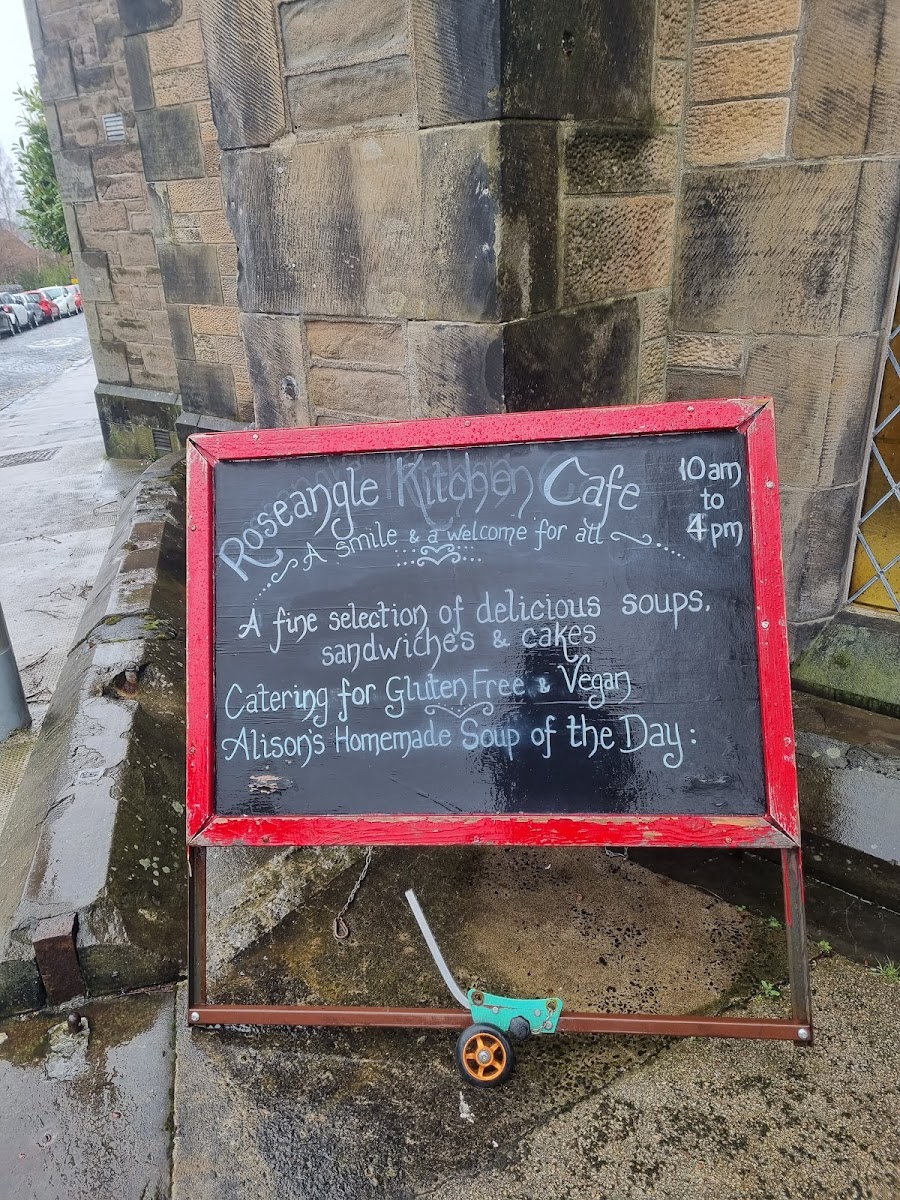 Roseangle Kitchen Cafe
10am
to
4pm
A smile & a welcome for all
A fine selection of delicious soups,
sandwiche's & cakes
Catering for Gluten Free & Vegan
Alison's Homemade Soup of the Day: